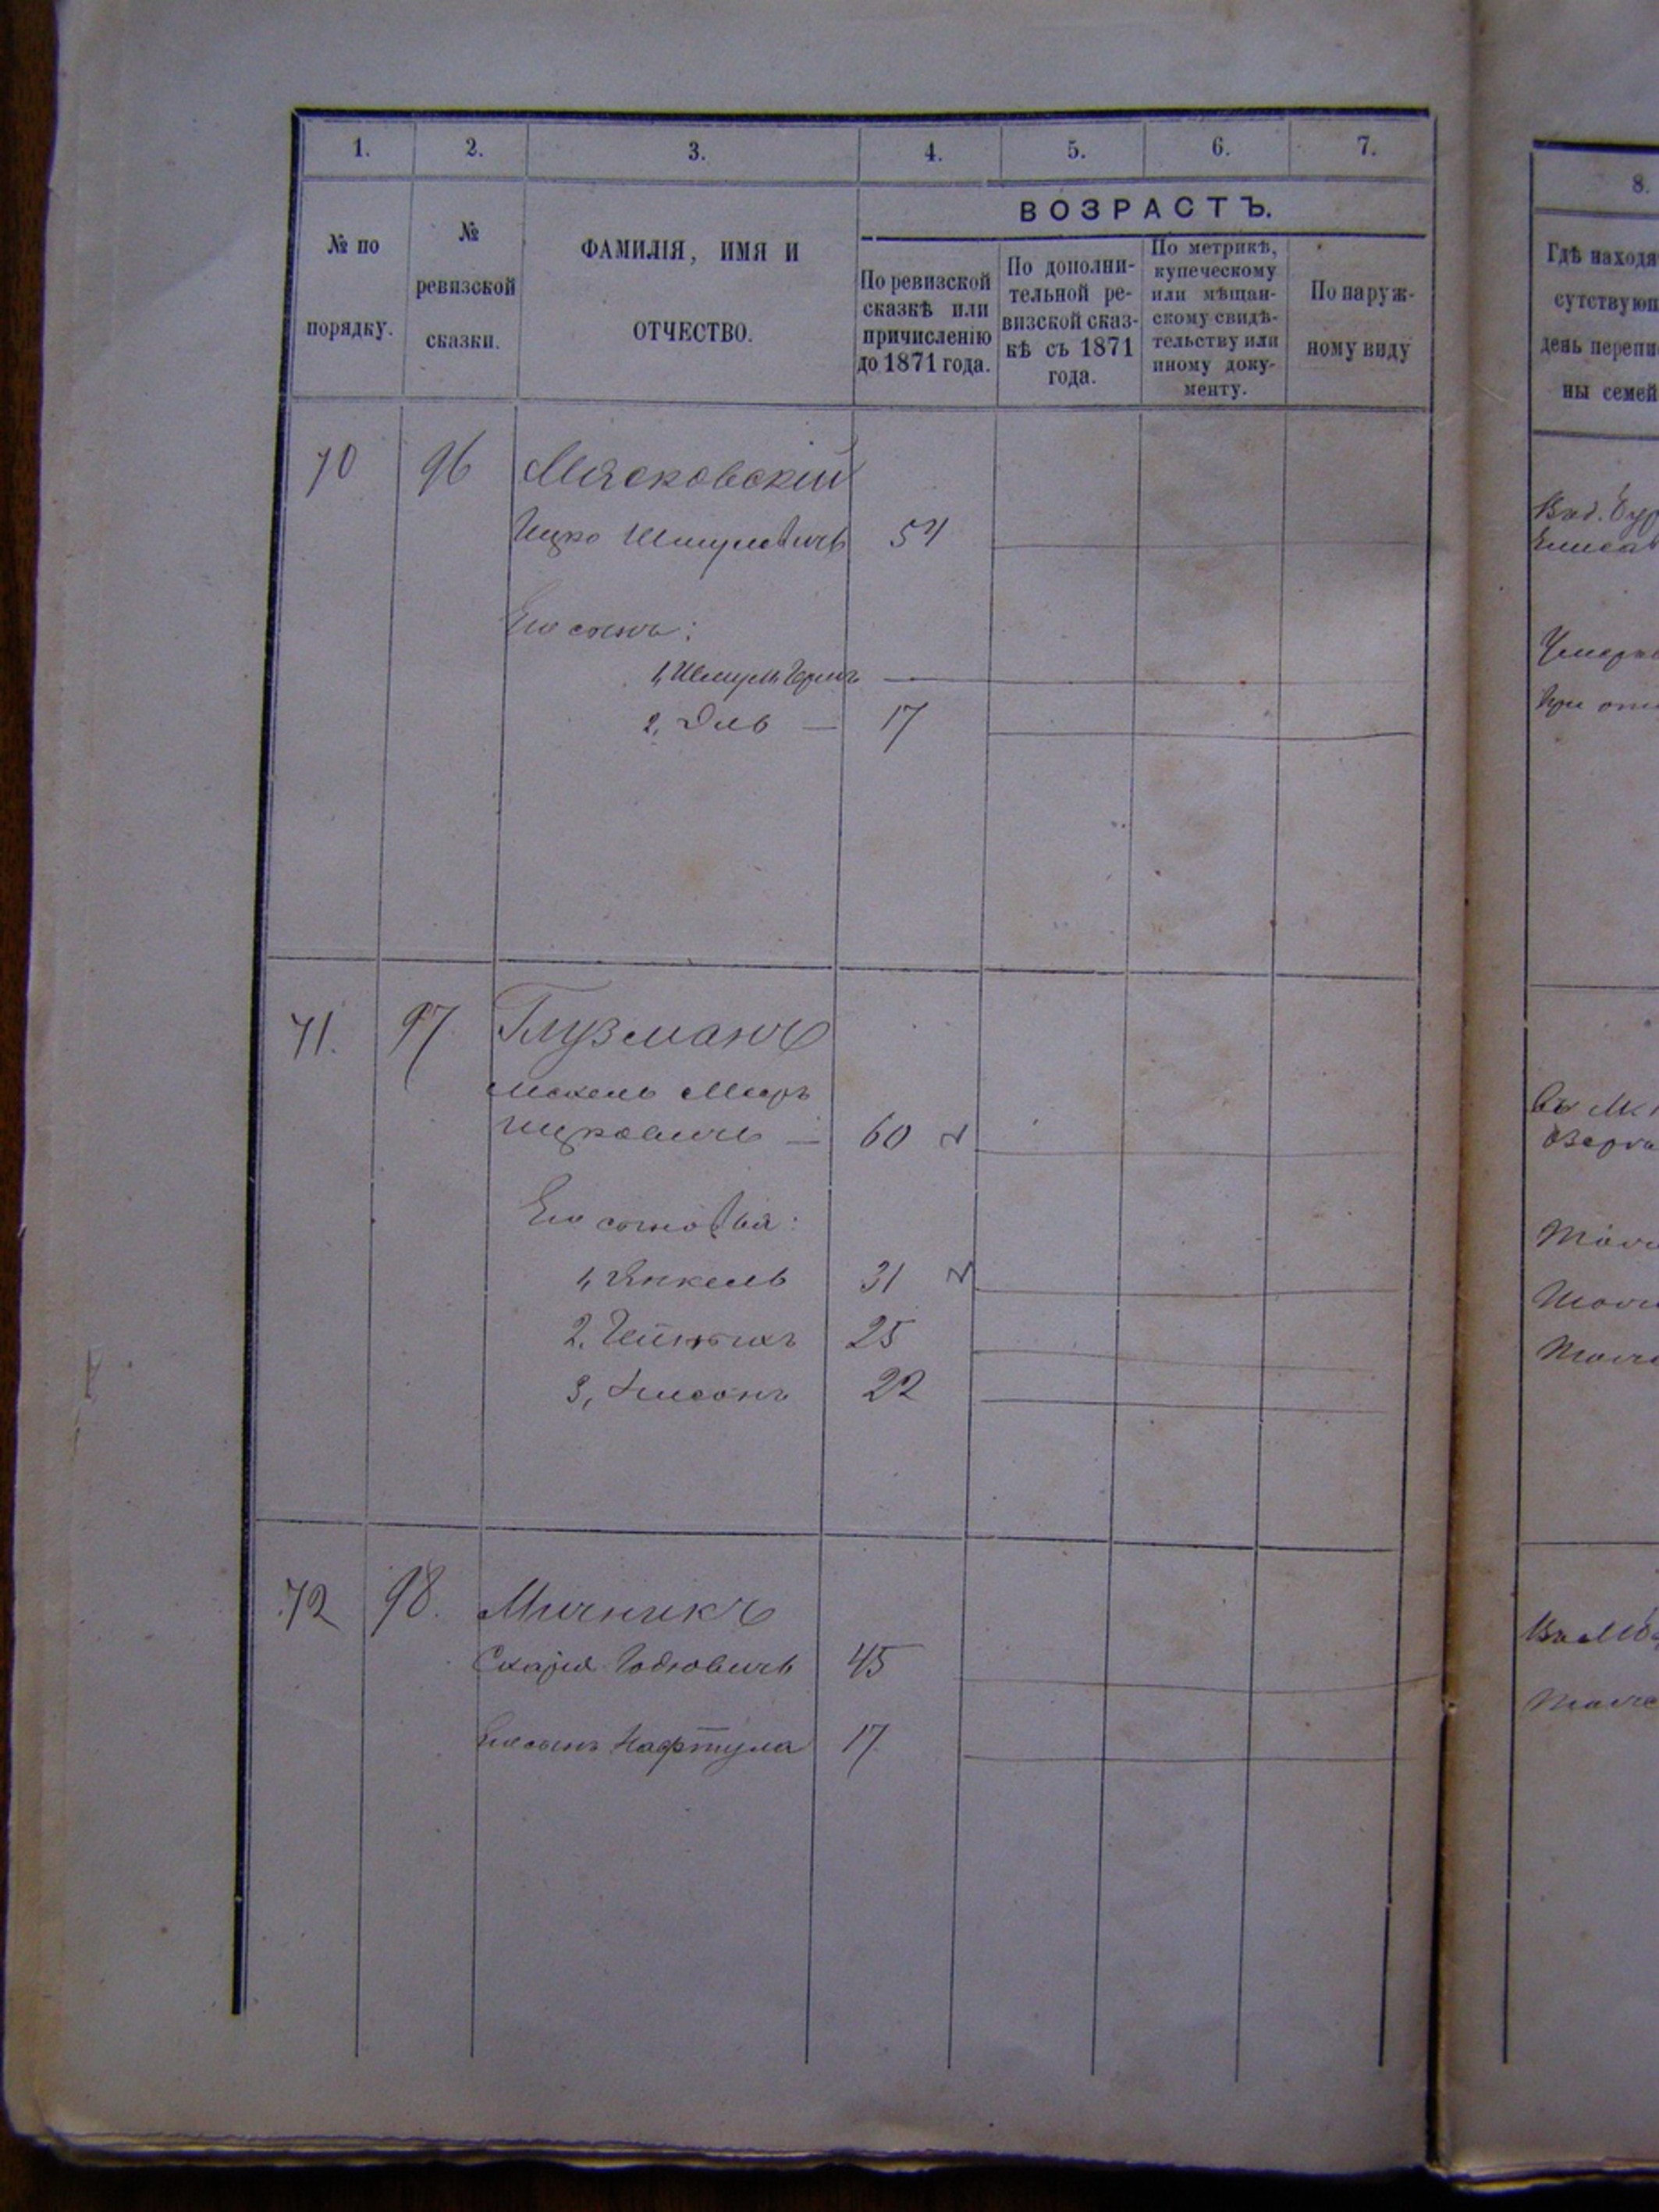 1. 2. 3. 4. 5. 6. 7.
№ по порядку.
№ ревизской сказки.
ФАМИЛІЯ, ИМЯ И
ОТЧЕСТВО.
ВОЗРАСТЪ.
По ревизской
сказкѣ или
причисленію
до 1871 года.
По дополни-
тельной ре-
визской сказ-
кѣ съ 1871
года.
По метрикѣ,
купеческому
или мѣщан-
скому свидѣ-
тельству или
иному доку-
менту.
По наруж-
ному виду
70 96 Мясковскій
Ицко Шмулевичъ 54
Его сынъ:
1, Шмуль
2, 17
71. 97 Глузманъ
Мееръ
Ицковичъ — 60
Его сыновья:
1, Янкель 31
2. 25
3, Нисонъ 22
72 98. Мичникъ
45
Его сынъ Нафтула 17
8.
Гдѣ находя
сутствующ
день перепи
ны семей